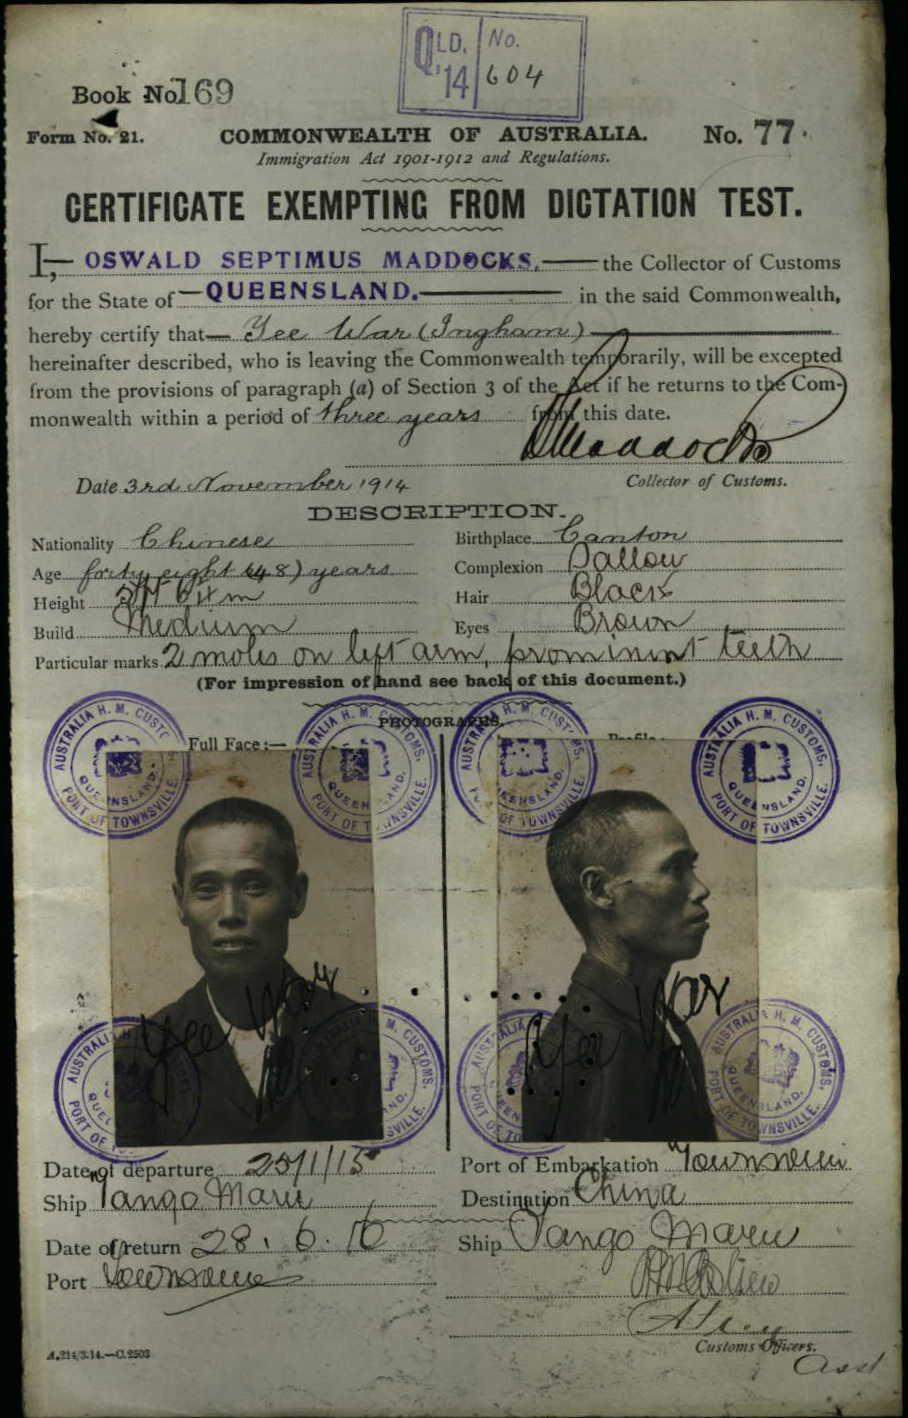 QLD. No.
Q.14 604
Book No. 169
Form No. 21. COMMONWEALTH OF AUSTRALIA. No. 77.
Immigration Act 1901-1912 and Regulations.
CERTIFICATE EXEMPTING FROM DICTATION TEST.
I, OSWALD SEPTIMUS MADDOCKS, the Collector of Customs
for the State of QUEENSLAND. in the said Commonwealth,
hereby certify that Yee War (Ingham)
hereinafter described, who is leaving the Commonwealth temporarily, will be excepted
from the provisions of paragraph (a) of Section 3 of the Act if he returns to the Com-
monwealth within a period of three years from this date.
Maddocks
Date 3rd November 1914 Collector of Customs.
DESCRIPTION.
Nationality Chinese Birthplace Canton
Age forty eight (48) years Complexion Sallow
Height 5ft Hair Black
Build Medium Eyes Brown
Particular marks 2 moles on left arm, prominint teeth
(For impression of hand see back of this document.)
PHOTOGRAPHS.
Full Face:— Profile:
AUSTRALIA H. M. CUSTO QUEENSLAND. PORT OF TOWNSVILLE.
AUSTRALIA H. M. CUSTOMS. QUEEN AND. PORT OF T VILLE.
AUSTRALIA H. M. CUSTOMS. QUEENSLAND. PORT OF TOWNSVILLE.
AUSTRALIA H. M. CUSTOMS. QUEENSLAND. PORT OF TOWNSVILLE.
Yee War
Yee War
AUSTRALI PORT OF
H. M. CUSTOMS. SVILLE.
AUSTRALIA PORT
AUSTRALIA H. M. CUSTOMS. QUEENSLAND. PORT OF TOWNSVILLE.
Date of departure 25/1/15 Port of Embarkation Townsville
Ship Tango Maru Destination China
Date of return 28. 6. 16 Ship Tango Maru
Port Townsville
Customs Officers.
A.214/3.14.—C.2503
Asst